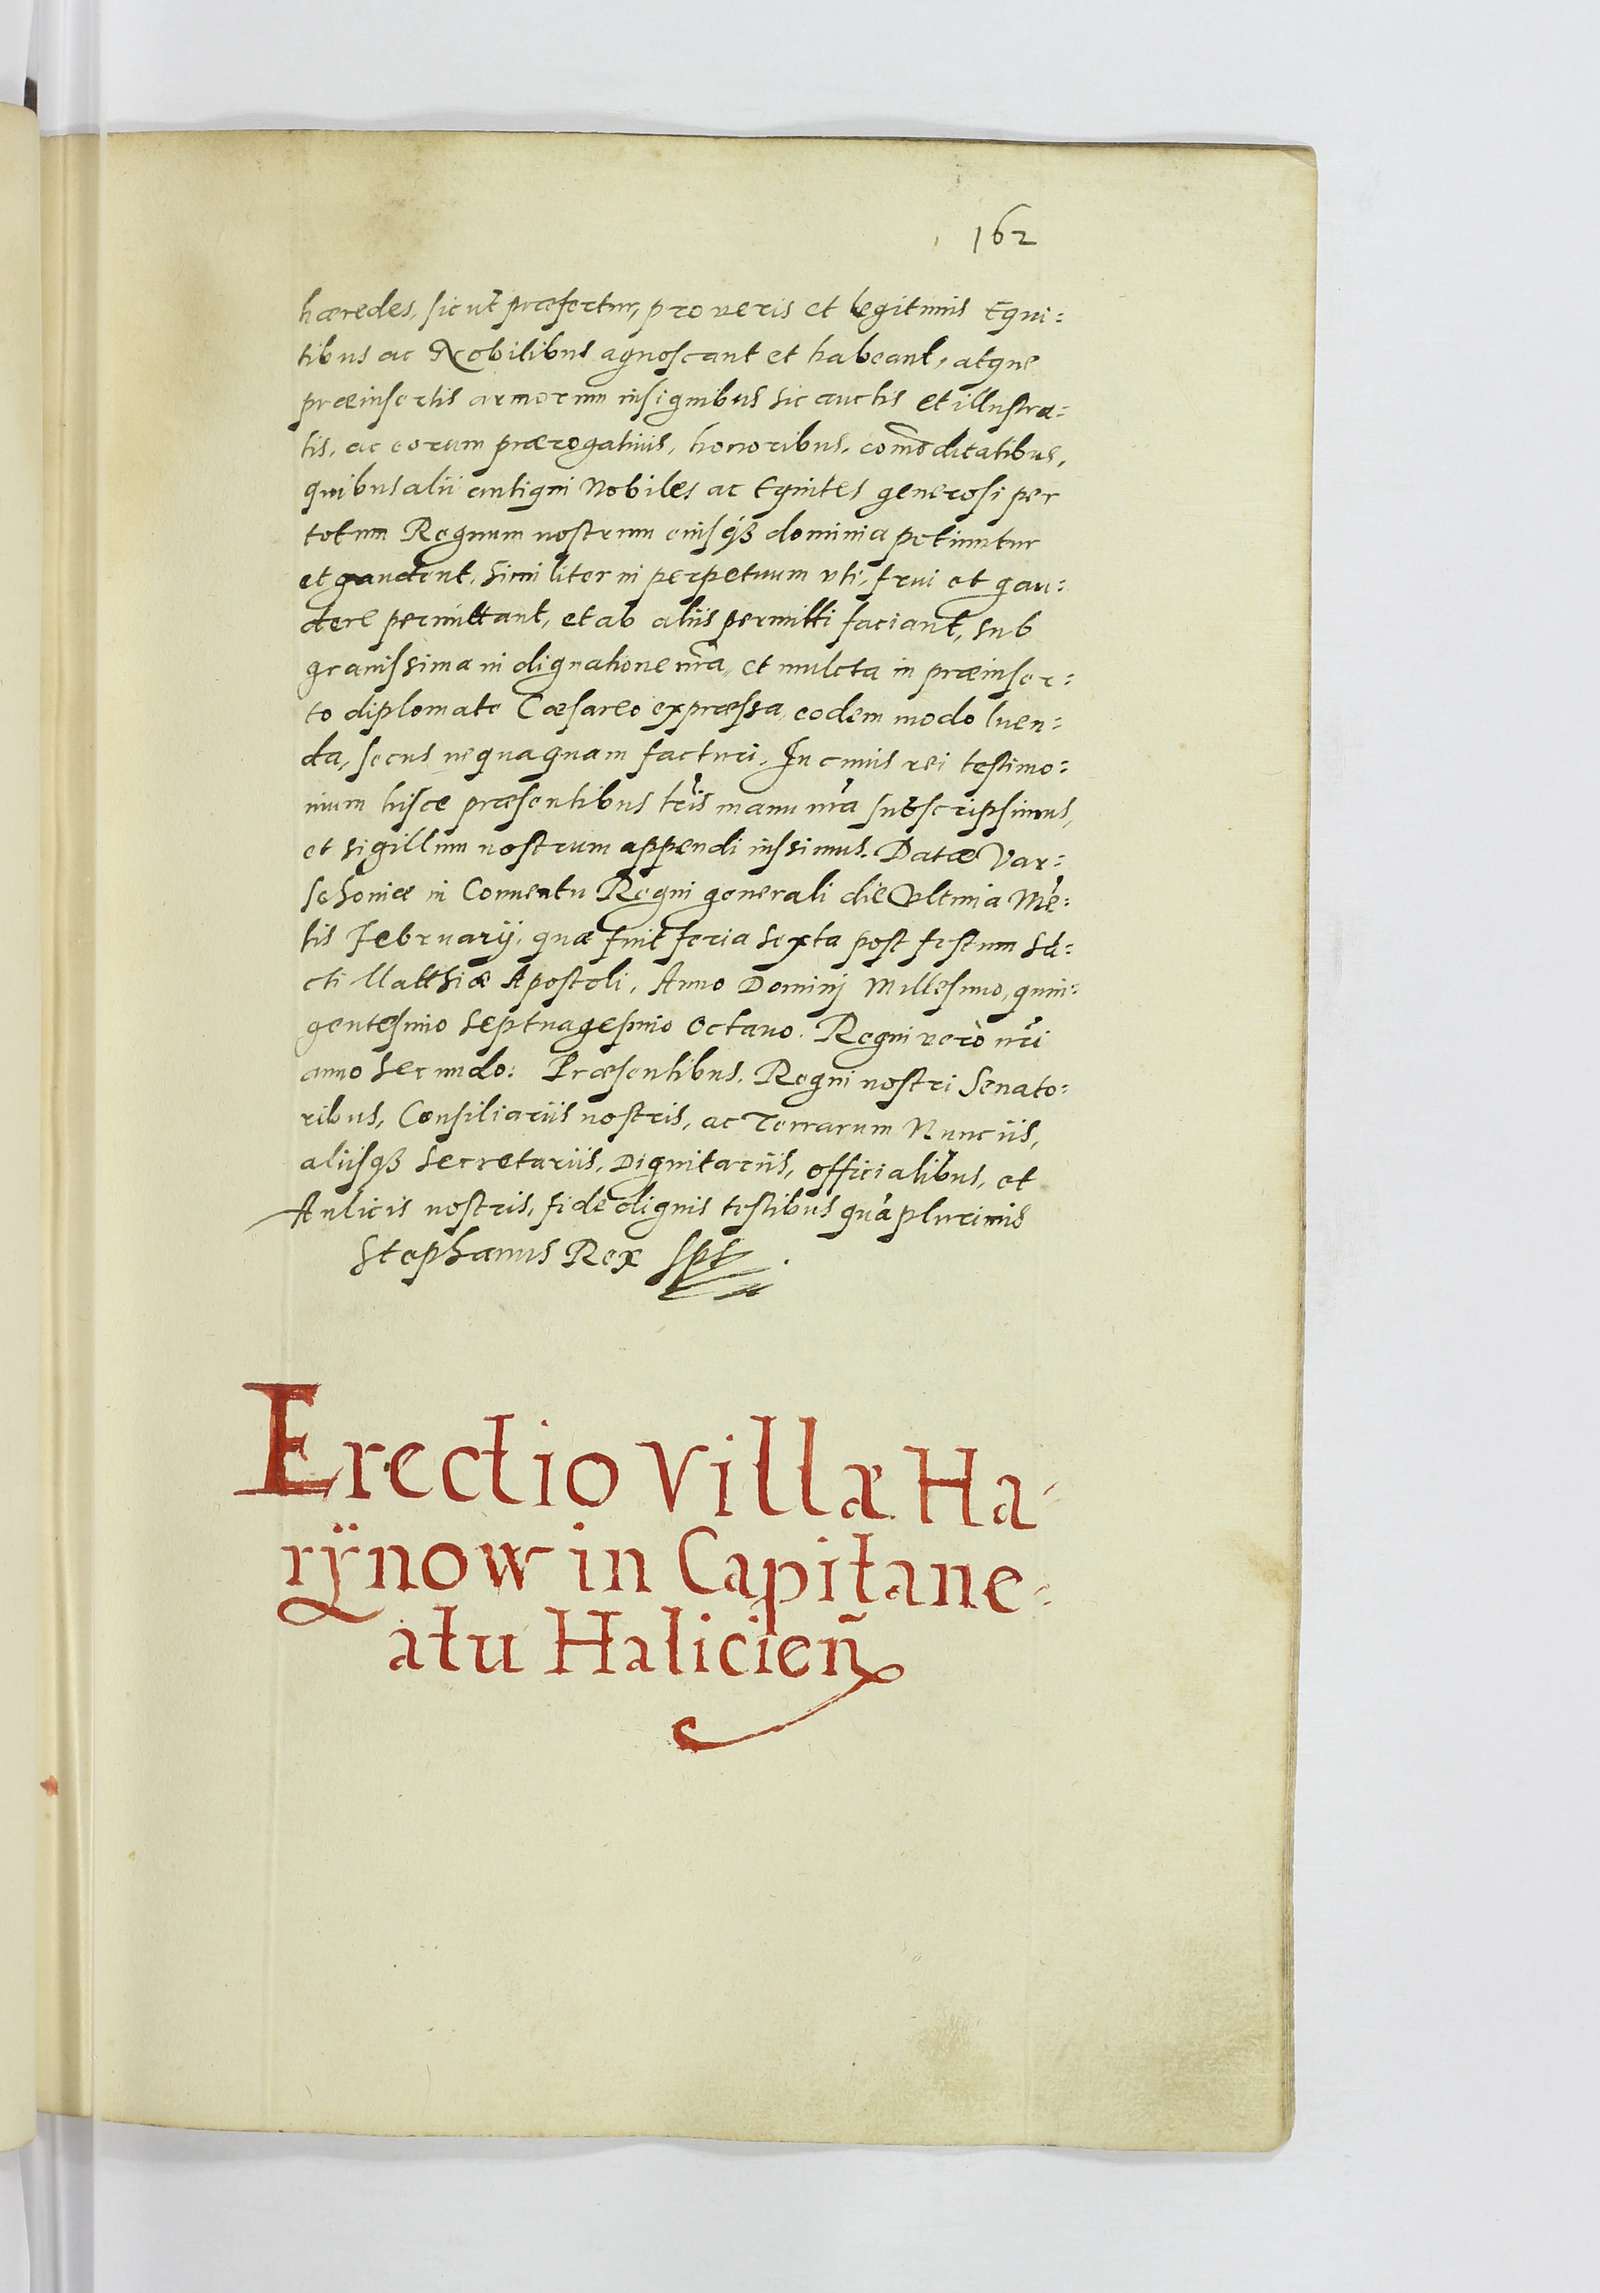 162
hæredes, sicut præfertur, pro veris et legitimis Equi:
tibus ac Nobilibus agnoscant et habeant, atque
præinsertis armorum insignibus sic auctis et illustra:
tis, ac eorum prærogativis, honoribus, com̃oditatibus,
quibus alii antiqui Nobiles ac Equites generosi per
totum Regnum nostrum eiusq̃ dominia potiuntur
et gaudent, similiter in perpetuum vti, frui et gau:
dere permittant, et ab aliis permitti faciant, sub
gravissima indignatione nr̃a, et mulcta in præinser:
to diplomate Cæsareo expressa, eodem modo luen:
da, secus nequaquam facturi. In cuius rei testimo:
nium hisce præsentibus lr̃is manu nr̃a subscripsimus,
et sigillum nostrum appendi iussimus. Datæ Var:
schoniæ in Conventu Regni generali die Vltima Mẽ:
sis February, quæ fuit feria sexta post festum Sã:
cti Matthiæ Apostoli, Anno Dominj Millesimo, quin:
gentesimo Septuagesimo Octavo. Regni verò nr̃i
anno Secundo: Præsentibus, Regni nostri Senato:
ribus, Consiliariis nostris, ac Terrarum Nunciis,
aliisq̃ Secretariis, Dignitariis, officialibus, et
Aulicis nostris, fide dignis testibus quã plurimis
Stephanus Rex sst
Erectio Villæ Ha-
rÿnow in Capitane-
atu Halicieñ